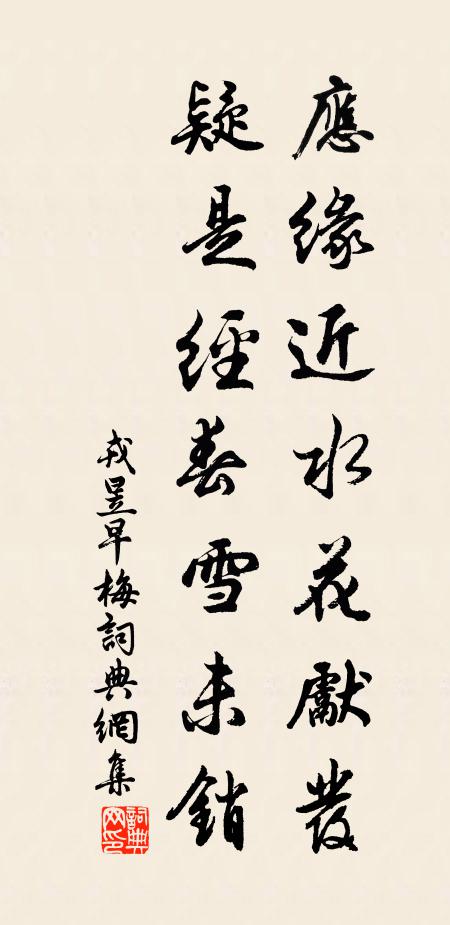 應緣近水花獻發
疑是經春雪未銷
戎昱早梅詞典網集
詞典
网印